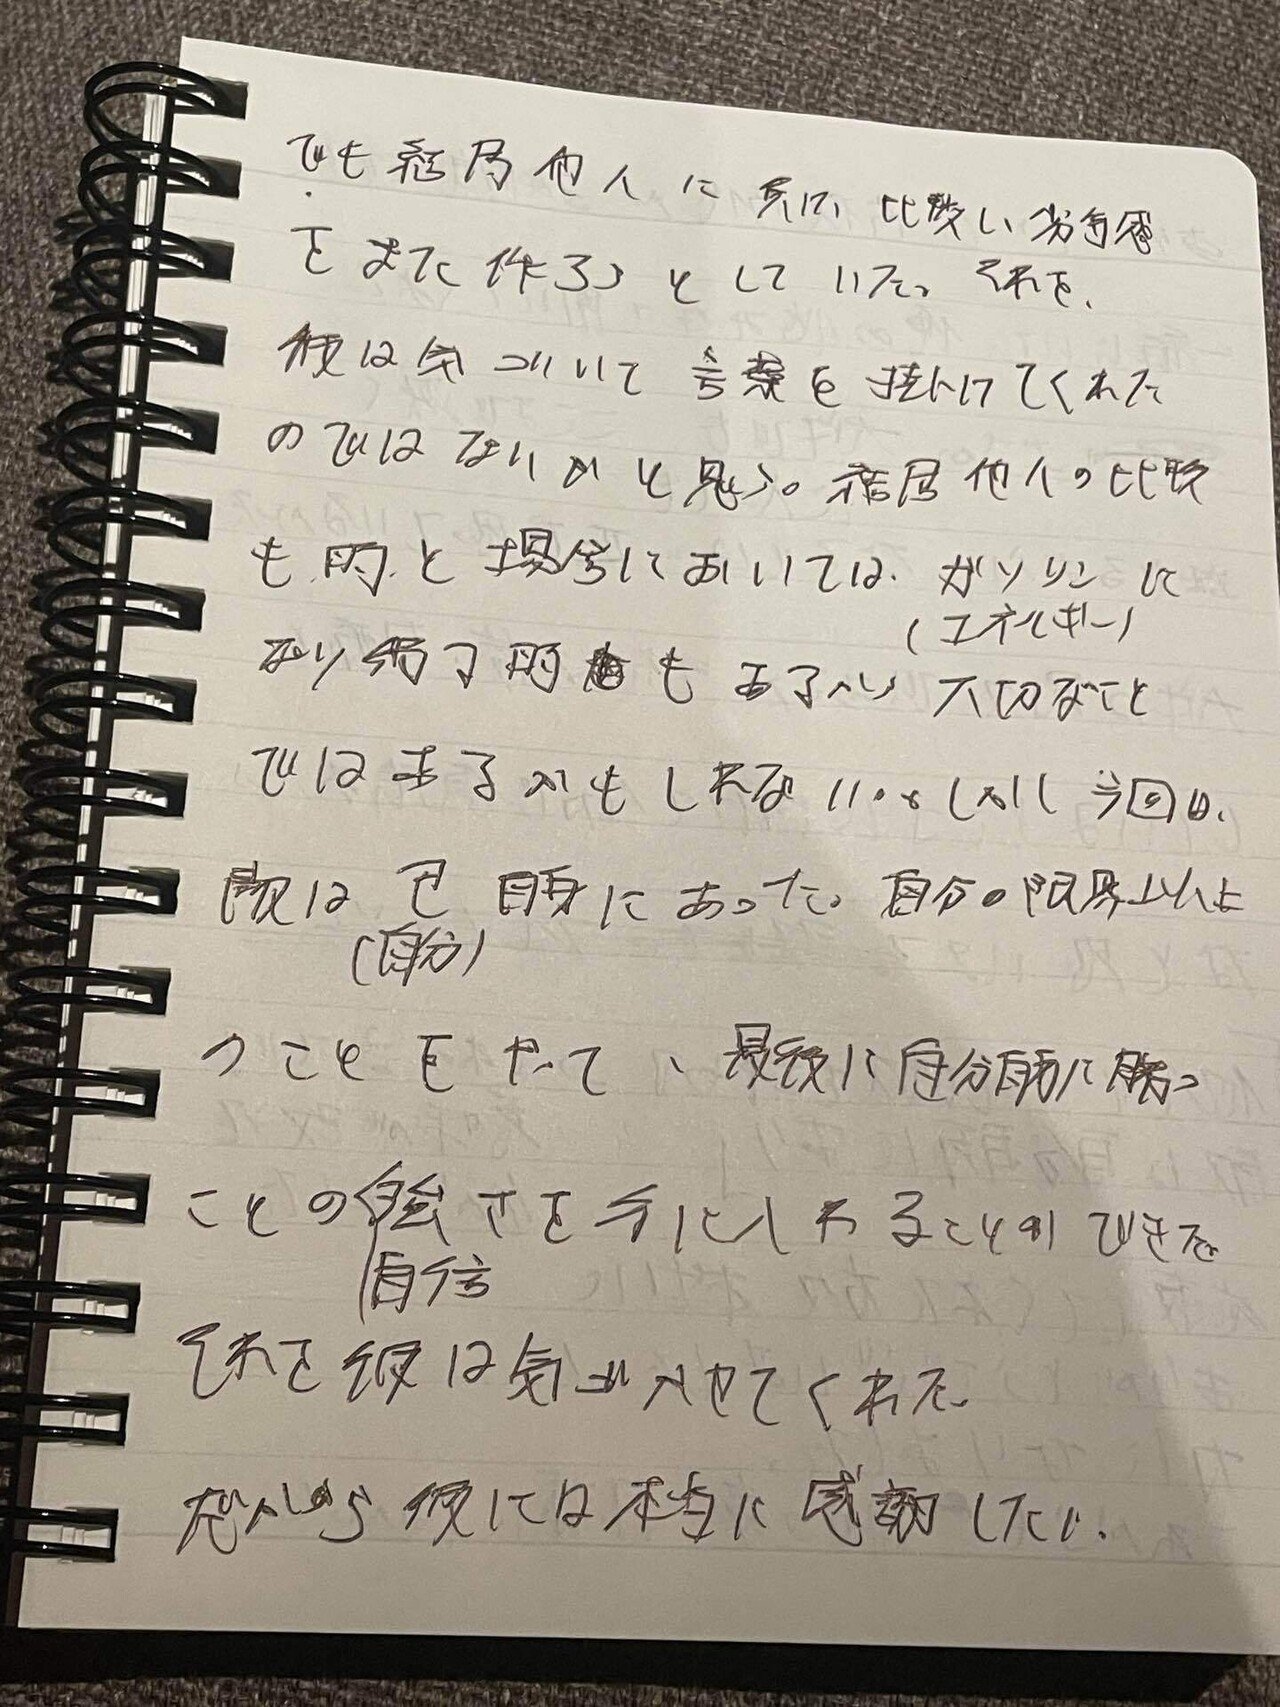 でも結局他人に 比較し劣等感
をまた作ろうとしていた。それを、
彼は気づいて言葉を掛けてくれた
のではないかと思う。結局他人の比較
も時と場合においては、ガソリンに
(エネルギー)
なり 時もあるから 大切なこと
ではあるかもしれない。しかし今回は、
敵は己自身にあった。自分の限界以上
のことをやって、最後に自分自身に勝つ
ことの強さを手に入れることができた
自信
(自分)
それを彼は気づかせてくれた。
だから彼には本当に感謝したい。